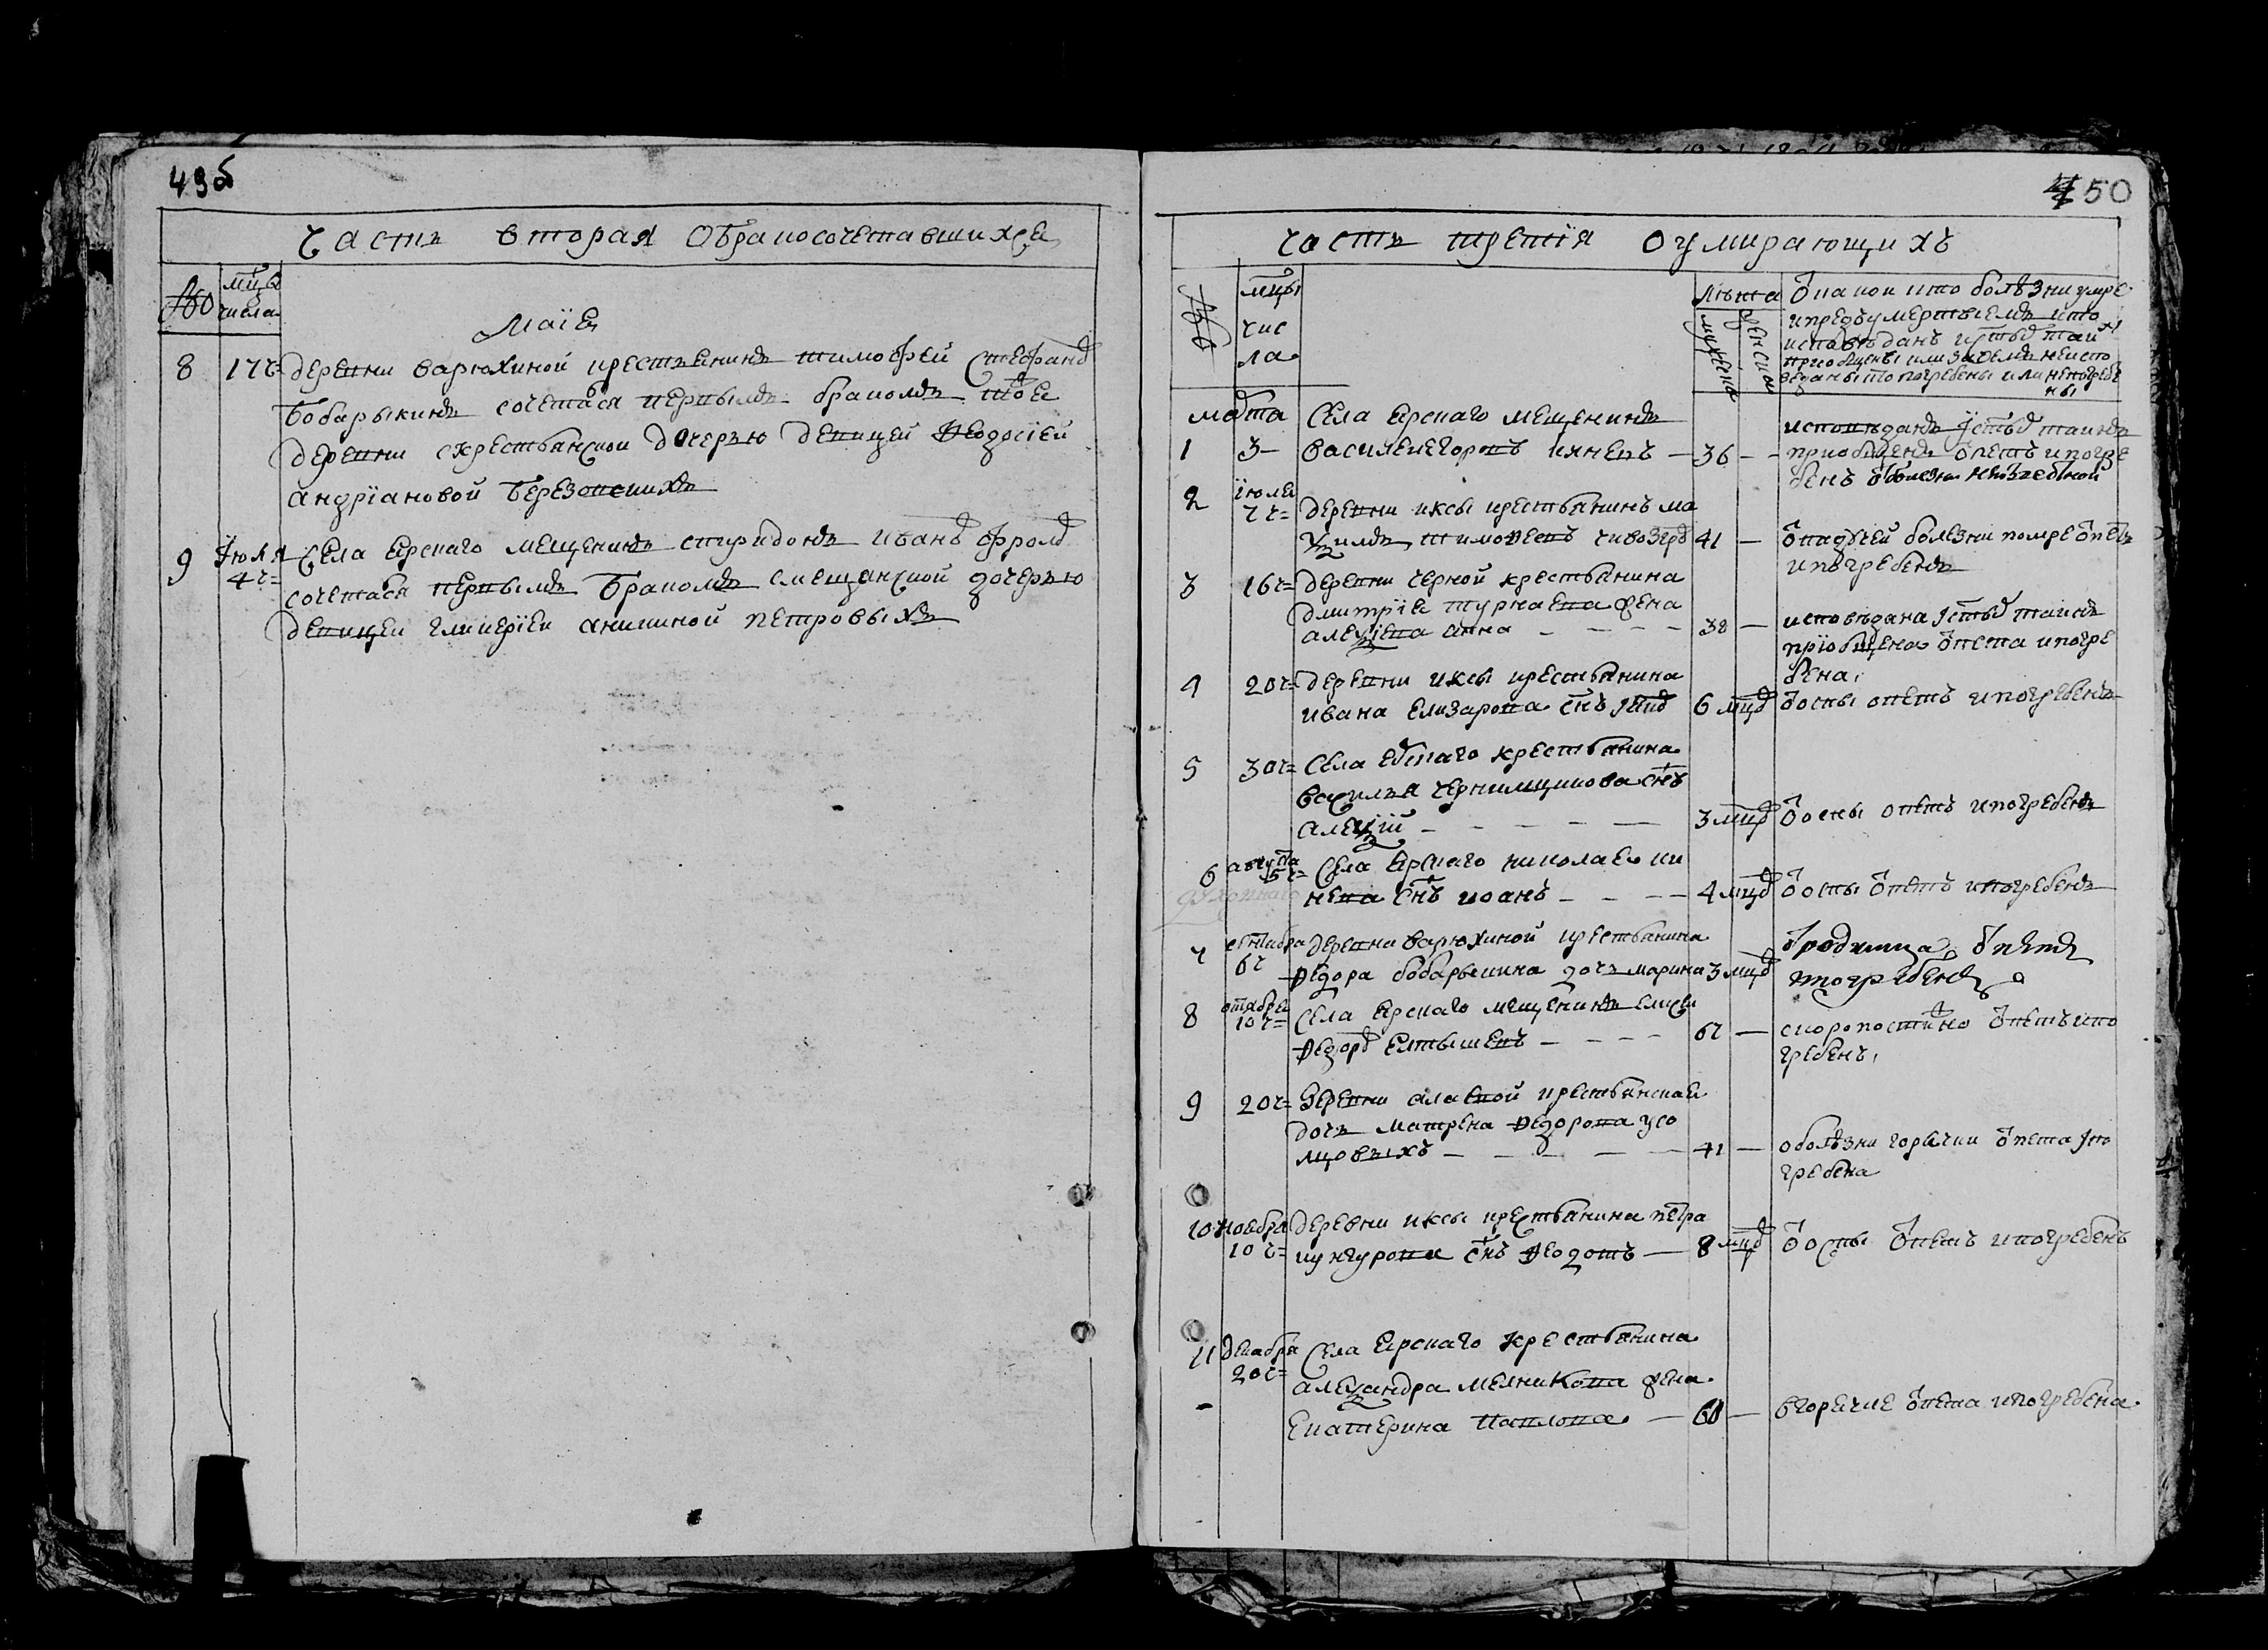 49б
Часть вторая обракосочетавшихся
№ мцъ числа
Маїя
8 17 ч деревни варюхиной крестьянинъ тимофей стефанъ
бобарыкинъ сочетася первымъ бракомъ тоя
деревни скрестьянскои дочерью девицей феодосїей
андрїановой березовскихъ
9 Июля 4 ч= села ярскаго мещенинъ спиридонъ иванъ фролъ
сочетася первымъ бракомъ смещанской дочерью
девицеи гликерїеи аникиной петровыхъ
50
часть третїя о умирающихъ
№ мцы числа лѣта мужеска женска
ѿ какои кто болѣзни умре
и предъ умертвїемъ кто
исповѣданъ и стыхъ таинъ
приобщены или затемъ неиспо
веданы кто погребены или непогребе
ны
марта села ярскаго мещенинъ
1 3 – василеи егоровъ княневъ – 36 – –
исповѣданъ и стыхъ таинъ
приобщенъ ѿпетъ и погре
бенъ ѿ болезни
2 июля 7 ч= деревни иксы крестьянинъ ма
ѯимъ тимофеевъ 41 – ѿ падучей болезни помре ѿпетъ
и погребенъ
3 16 ч= деревни черной крестьянина
дмитрїя турнаева жена
алеѯїева анна – – – – 38 –
исповѣдана и стыхъ таинъ
прїобщена ѿпета и погре
бена
4 20 ч= деревни иксы крестьянина
ивана елизарова снъ 6 мцъ ѿ оспы опетъ и погребенъ
5 30 ч= села крестьянина
василья чернилщикова снъ
алеѯїй – – – – – 3 мцъ ѿ оспы опетъ и погребенъ
6 августа 5 ч= села ярскаго николая кня
нева снъ иоанъ – – – – 4 мцъ ѿ оспы ѿпетъ и погребенъ
7 сентября 6 ч деревни варюхиной крестьянина
федора бобарыкина дочь марина 3 мцъ ѿ родимца ѿпета
погребена
8 октября 10 ч= села ярскаго мещенинъ елисеи
федоръ елтышевъ – – – – 67 – скоропостижно ѿпетъ и по
гребенъ
9 20 ч= деревни крестьянская
дочь матрена федорова усо
лцовыхъ – – – – – 41 – ѿ болѣзни горячки ѿпета и по
гребена
10 ноября 10 ч= деревни иксы крестьянина петра
кунгурова снъ федотъ – 8 мцъ ѿ оспы ѿпетъ и погребенъ
11 декабря 20 ч= села ярскаго крестьянина
алеѯандра мелникова жена
екатерина павлова – 60 – в горячке ѿпета и погребена